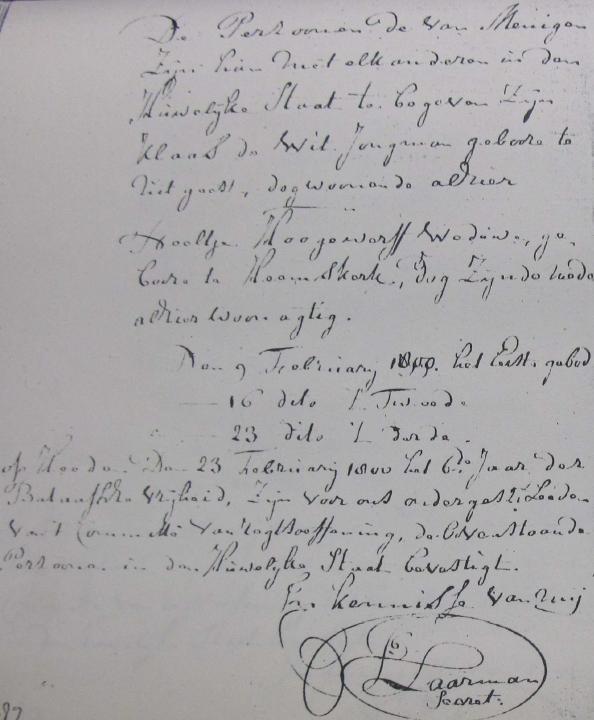 De Persoonen de van Meenigen
Zijn him met elkanderen in den
Huwelijke Staat te begeven Zijn
Klaas de Wit Jongman geboore te
Uitgeest, dog woonende alhier
Hoogewerff Weduwe, ge-
boore te Heemskerk, dog Zijnde mede
alhier woonagtig.
Den 9 February 1800. het Eerste gebod
16 dito 't Tweede
23 dito 't derde.
op Heeden Den 23 February 1800 het 6de Jaar der
Bataafsche Vrijheid, Zijn voor ons onderget: Leeden
van't Committé van regtsoeffening, de bovenstaande
Persoonen in den Huwelijke Staat bevestigt.
In kennisse van mij
Laarman
Secret: